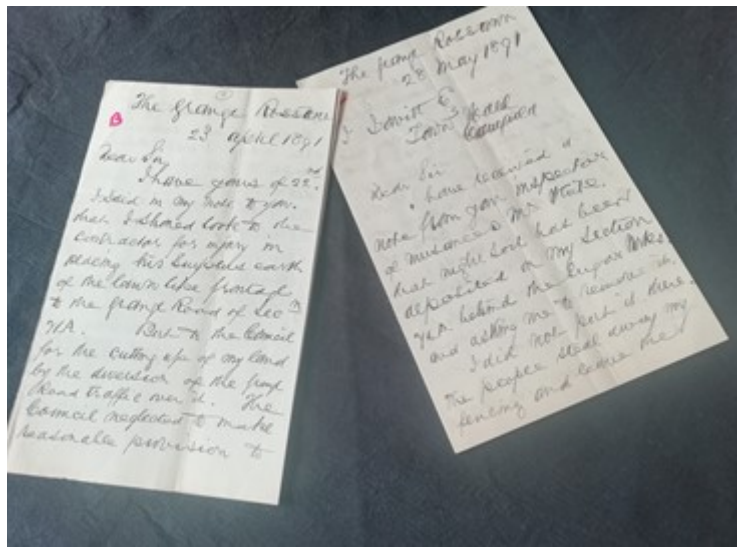 The Grange Rosstown
23 April 1891
Dear Sir
I have yours of 22nd.
I said in my note to you.
that I should look to the
contractor for injury in
placing his surplus earth
of the lawn like frontage
to the Grange Road of Sec
71A. But to the Council
for the cutting up of my land
by the diversion of the
Road traffic over it. The
Council neglected to make
reasonable provision to
The Grange Rosstown
28 May 1891
Town Hall
Caulfield
Dear Sir
I have received a
note from your inspector
of nuisances Mr
that night soil has been
deposited in my Section
71A behind the Sugar Works
and asking me to remove it.
I did not put it there.
The people steal during my
fencing and leave the